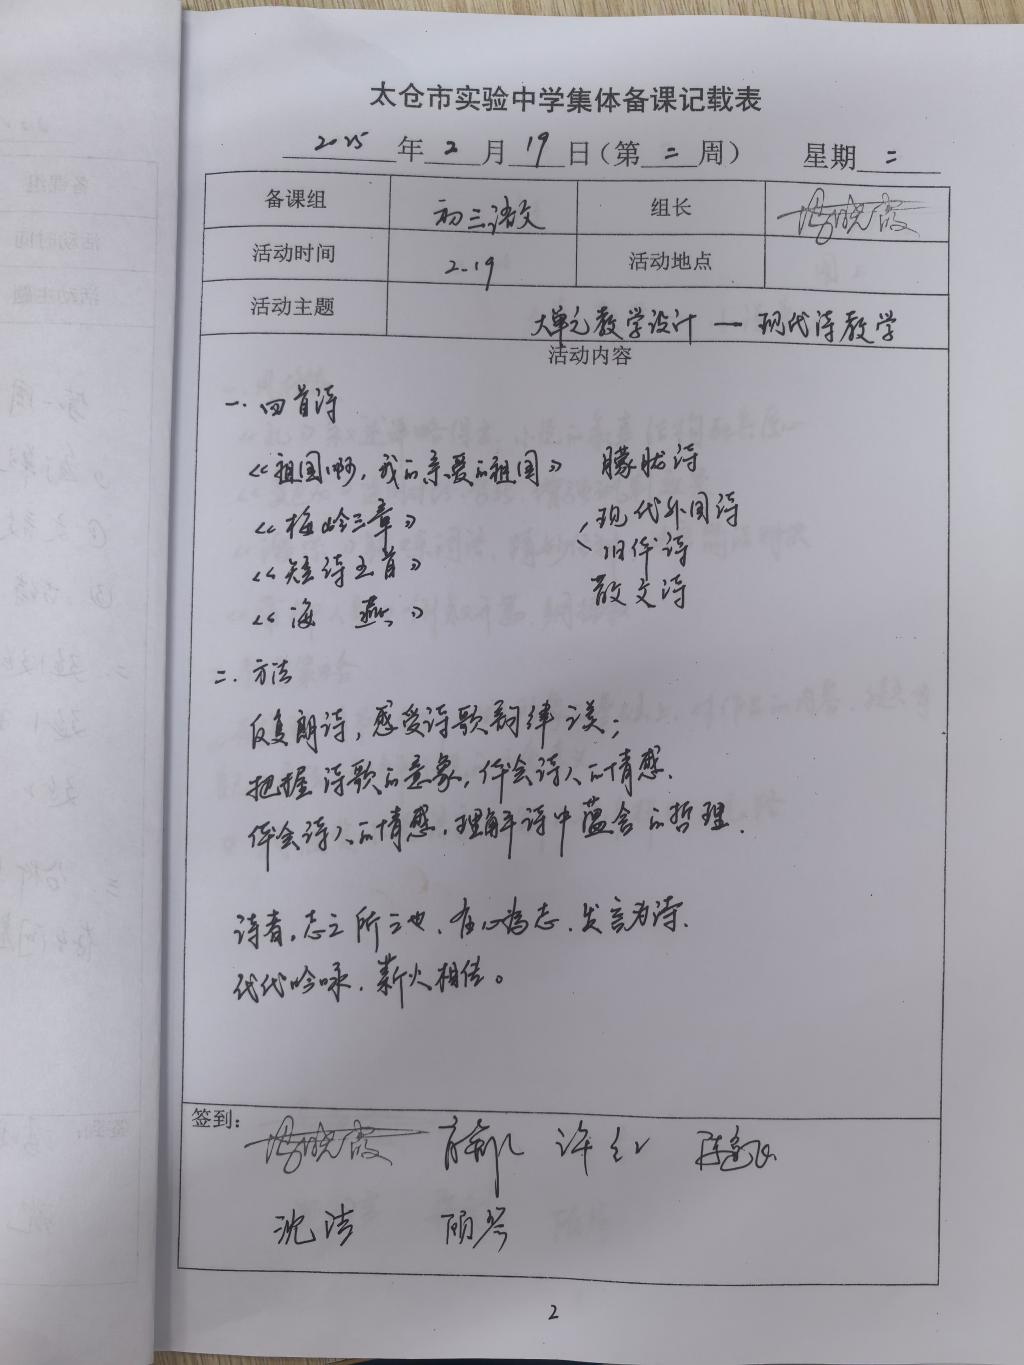 太仓市实验中学集体备课记载表
2025年2月19日(第二周) 星期二
备课组 初三语文 组长
活动时间 2.19 活动地点
活动主题 大单元教学设计 — 现代诗教学
活动内容
一.四首诗
《祖国啊,我的亲爱的祖国》 朦胧诗
《梅岭三章》 现代外国诗
《短诗五首》 旧体诗
《海 燕》 散文诗
二.方法
反复朗诗,感受诗歌韵律之美;
把握诗歌的意象,体会诗人的情感.
体会诗人的情感,理解诗中蕴含的哲理.
诗者,志之所之也.在心为志.发言为诗.
代代吟咏.薪火相传。
签到:
许红
沈洁 顾琴
2